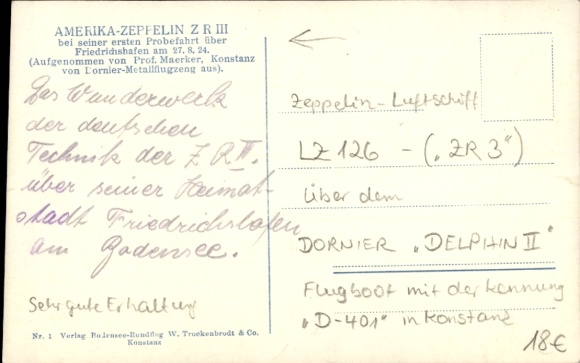 AMERIKA-ZEPPELIN Z R III
bei seiner ersten Probefahrt über
Friedrichshafen am 27. 8. 24.
(Aufgenommen von Prof. Maerker, Konstanz
von Dornier-Metallflugzeug aus).
Das Wunderwerk
der deutschen
Technik der Z. R III.
über seiner Heimat-
stadt Friedrichshafen
am Bodensee.
Sehr gute Erhaltung
Nr. 1 Verlag Bodensee-Rundflug W. Truckenbrodt & Co.
Konstanz
Zeppelin-Luftschiff
LZ 126 - („ZR 3")
über dem
DORNIER „DELPHIN II"
Flugboot mit der Kennung
„D-401" in Konstanz
18€